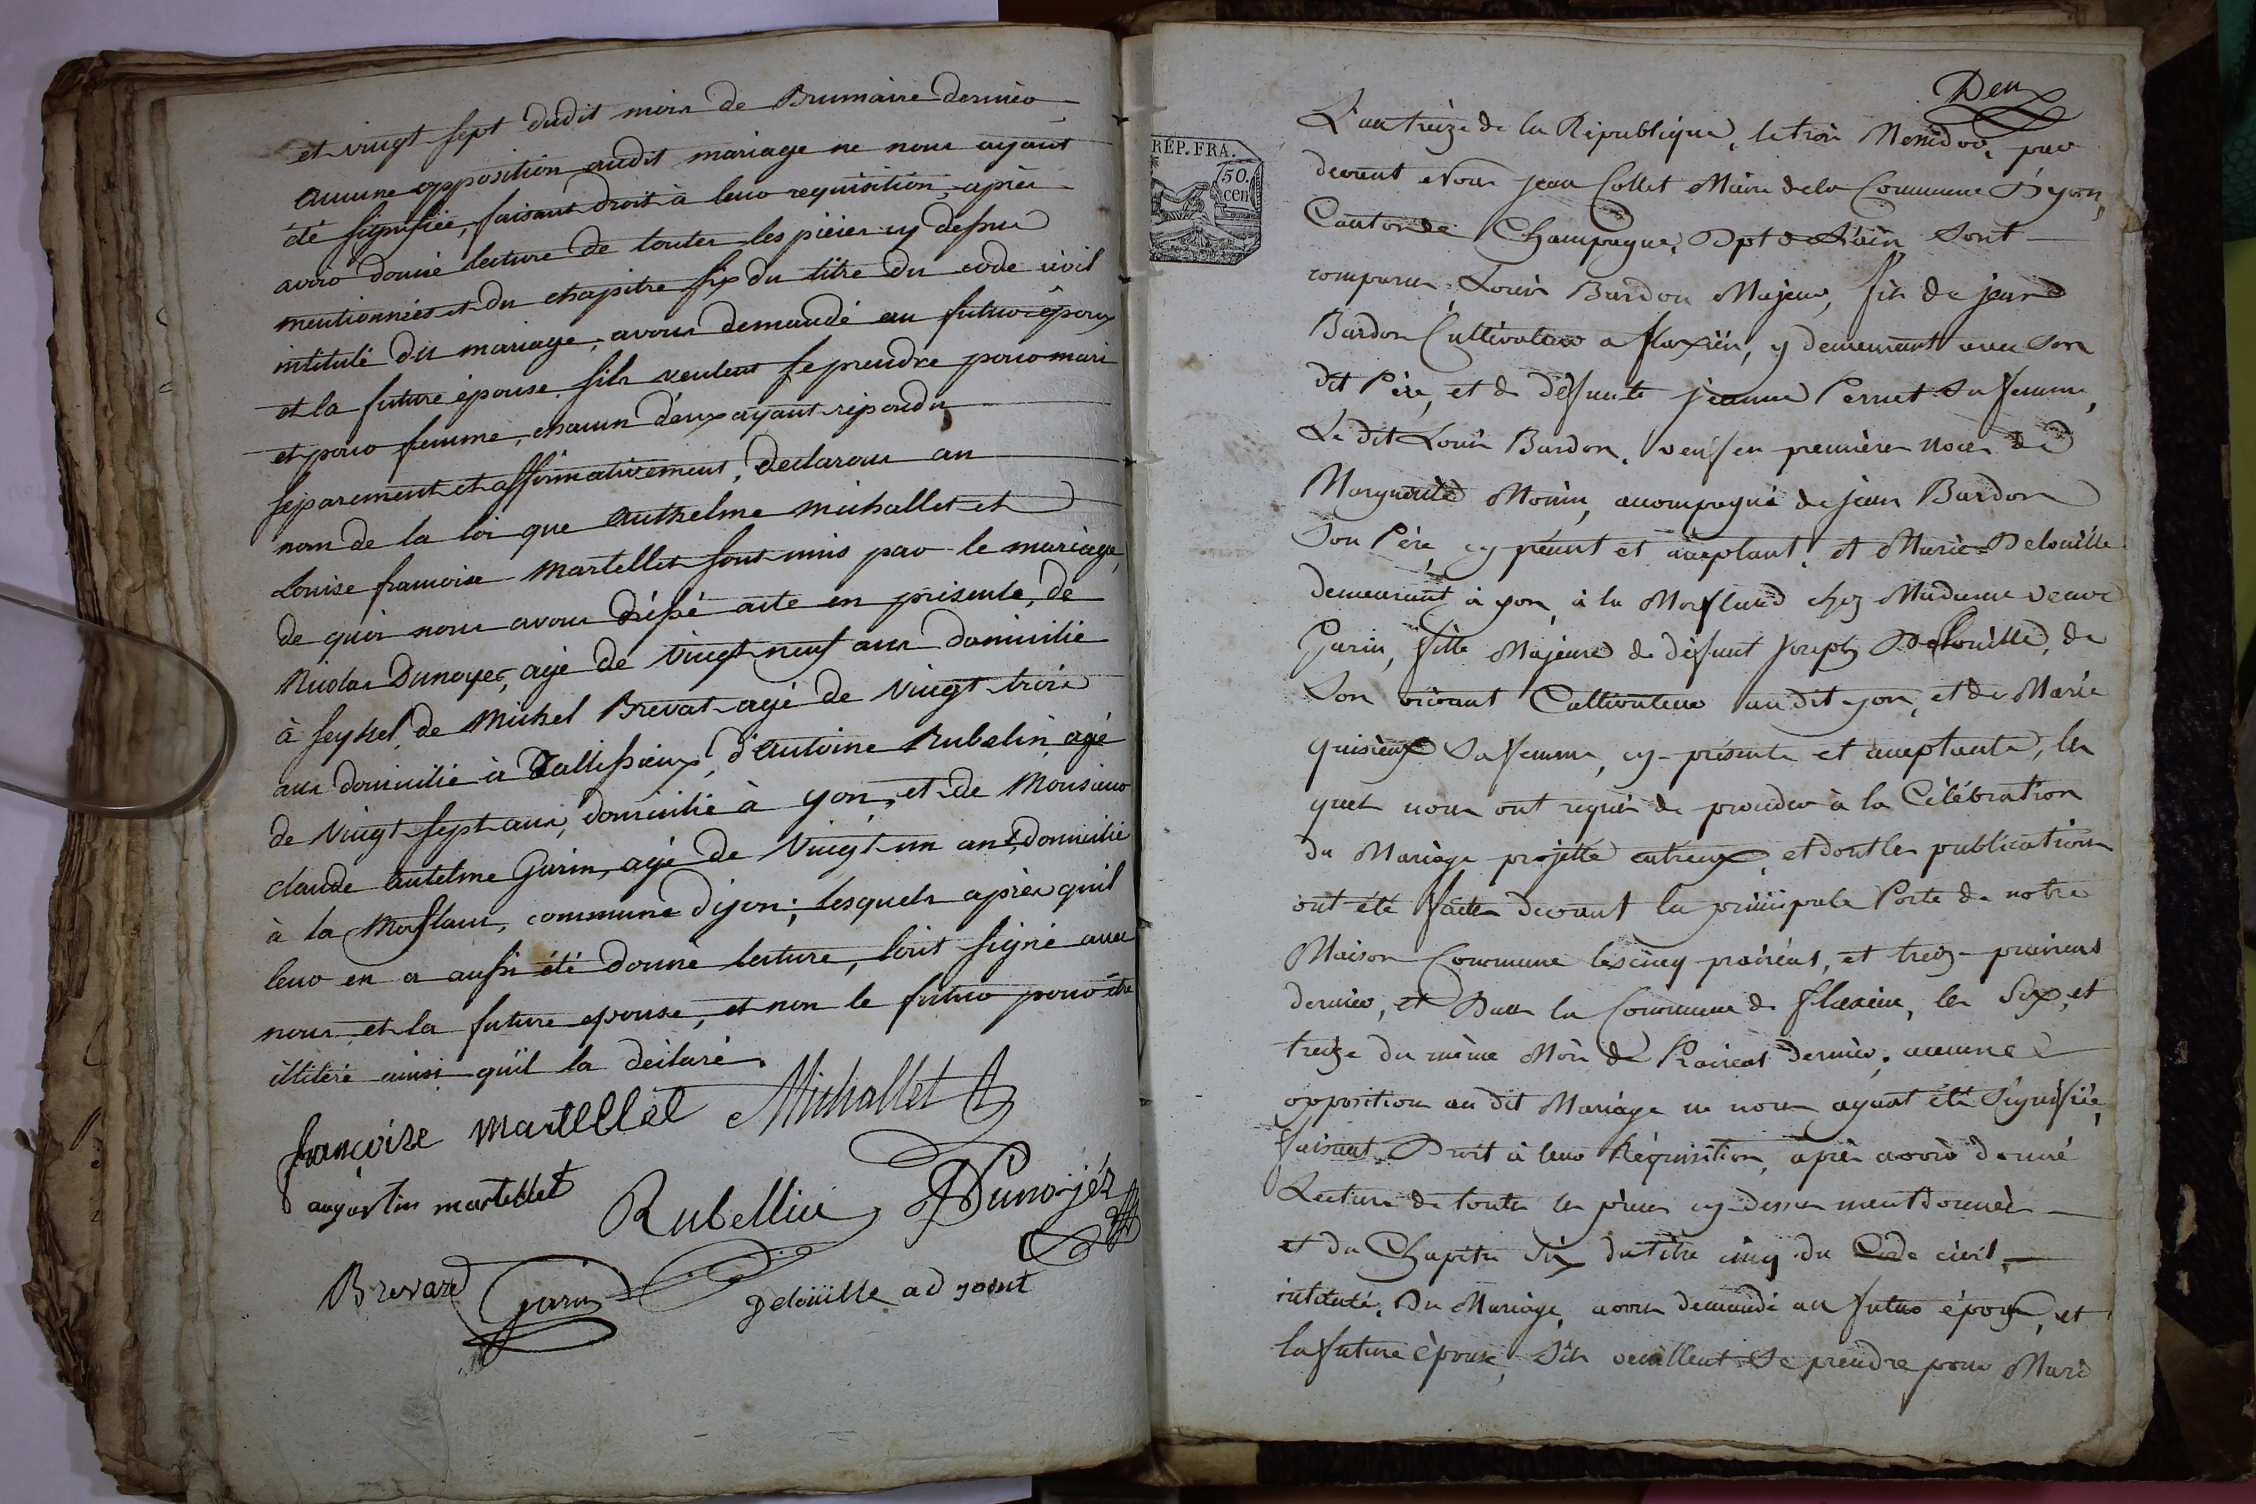 et vingt sept dudit mois de Brumaire dernier
aucune opposition audit mariage ne nous ayant
été signifiée, faisant droit à leur requisition, après
avoir donné lecture de toutes les pièces cy dessus
mentionnées et du chapitre six du titre du code civil
intitulé du mariage, avons demandé au futur époux
et la future épouse s'ils veulent se prendre pour mari
et pour femme, chacun d'eux ayant répondu
separement et affirmativement, declarons au
nom de la loi que anthelme michallet et
Louise francoise Martellet sont unis par le mariage,
de quoi nous avons dréssé acte en présente, de
Nicolas Dunoyer, agé de vingt neuf ans domicilié
à seyssel, de Michel Brevat agé de vingt trois
ans domicilié à Tallissieux, d'antoine Rubelin agé
de vingt sept ans, domicilié à yon, et de Monsieur
claude antelme Garin, agé de vingt un ans domicilié
à la Morflant, commune d'yon; lesquels après qu'il
leur en a aussi été donné lecture, l'ont signé avec
nous et la future epouse, et non le futur pour être
illitéré ainsi qu'il la déclaré.
françoise martellet Michallet
augustin martellet Rubellin Dunoyér
Brevard Garin Delouille adjoint
Deux
RÉP. FRA.
50.
cen
L'an treize de la République, le trois Messidor, par
devant Nous jean Collet Maire de la Commune D'yon,
Canton de Champagne, Dpt de L'ain Sont
comparus, Louis Bardon Majeur, fils de jean
Bardon Cultivateur a flaxieu, y demeurant avec Son
dit Père, et de déffunte jeanne Pernet Sa femme,
Le dit Louis Bardon, veuf en première noces de
Marguerite Monin, acompagné de jean Bardon
Son Père cy présent et acceptant, et Marie Delouille
demeurant à yon, à la Morfland chez Madame veuve
Garin, fille Majeure de défunt joseph Delouille, de
Son vivant Cultivateur au dit yon, et de Marie
Sa femme, cy-présente et acceptante, les
quels nous ont requis de procéder à la Célébration
du Mariage projetté entreux, et dont les publications
ont été faites devant la principale Porte de notre
Maison Commune les cinq prairéal, et treize prairéal
dernier, et Dans la Commune de flaxieu, les Six, et
treize du même Mois de Prairéal dernier, aucune
opposition au dit Mariage ne nous ayant été Signifiée,
faisant Droit à leur Réquisition, après avoir donné
Lecture de toutes les pièces cy-dessus mentionnées
et du Chapitre Six du titre cinq du Code civil,
intitulé, Du Mariage, avons demandé au futur époux, et
la future épouse, S'ils veuillent Se prendre pour Mari